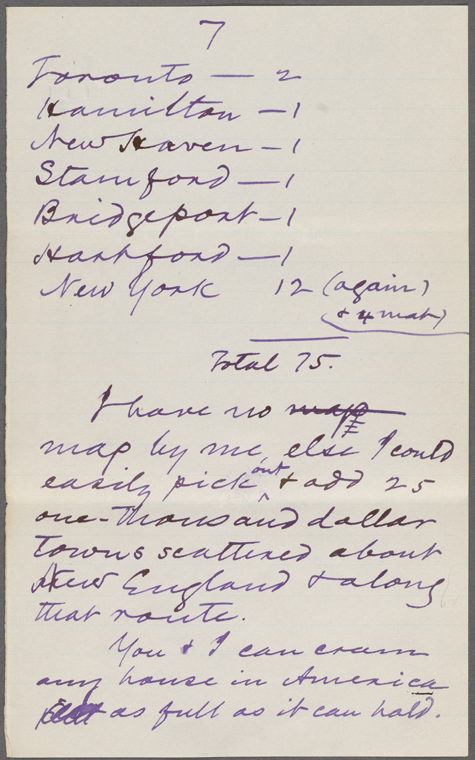 7
Toronto — 2
Hamilton — 1
New Haven — 1
Stamford — 1
Bridgeport — 1
Hartford — 1
New York 12 (again)
& 4 mat)
Total 75.
I have no map
map by me, else I could
easily pick out & add 25
one-thousand dollar
towns scattered about
New England & along
that route.
You & I can cram
any house in America
as full as it can hold.